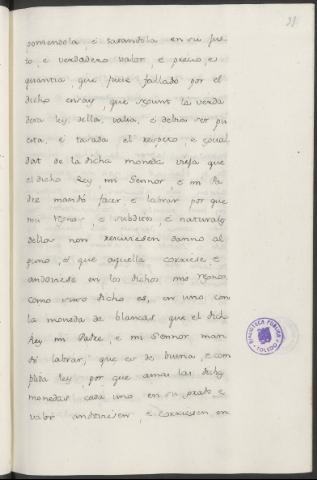 21
poniendola, é tasandola en su jus
to, é verdadero valor, é precio, é
quantia, que fuese fallado por el
dicho ensay, que segunt la verda
dera ley della, valia, é debia ser pu
esta, é tasada el respeto, é egual
dat de la dicha moneda vieja que
el dicho Rey, mi Sennor, é mi Pa
dre mandó facer é labrar por que
mis Regnos, é subditos, é naturales
dellos non rescibiesen danno al
guno, é que aquella corriese é
andoviese en los dichos mis Regnos,
como suso dicho es, en uno con
la moneda de blancas que el dicho
Rey mi Padre, é mi Sennor man
dó labrar, que es de buena, é com
plida ley, por que amas las dichas
monedas cada una en su prescio é
valor andoviesen, é corriesen en
BIBLIOTECA PUBLICA
TOLEDO